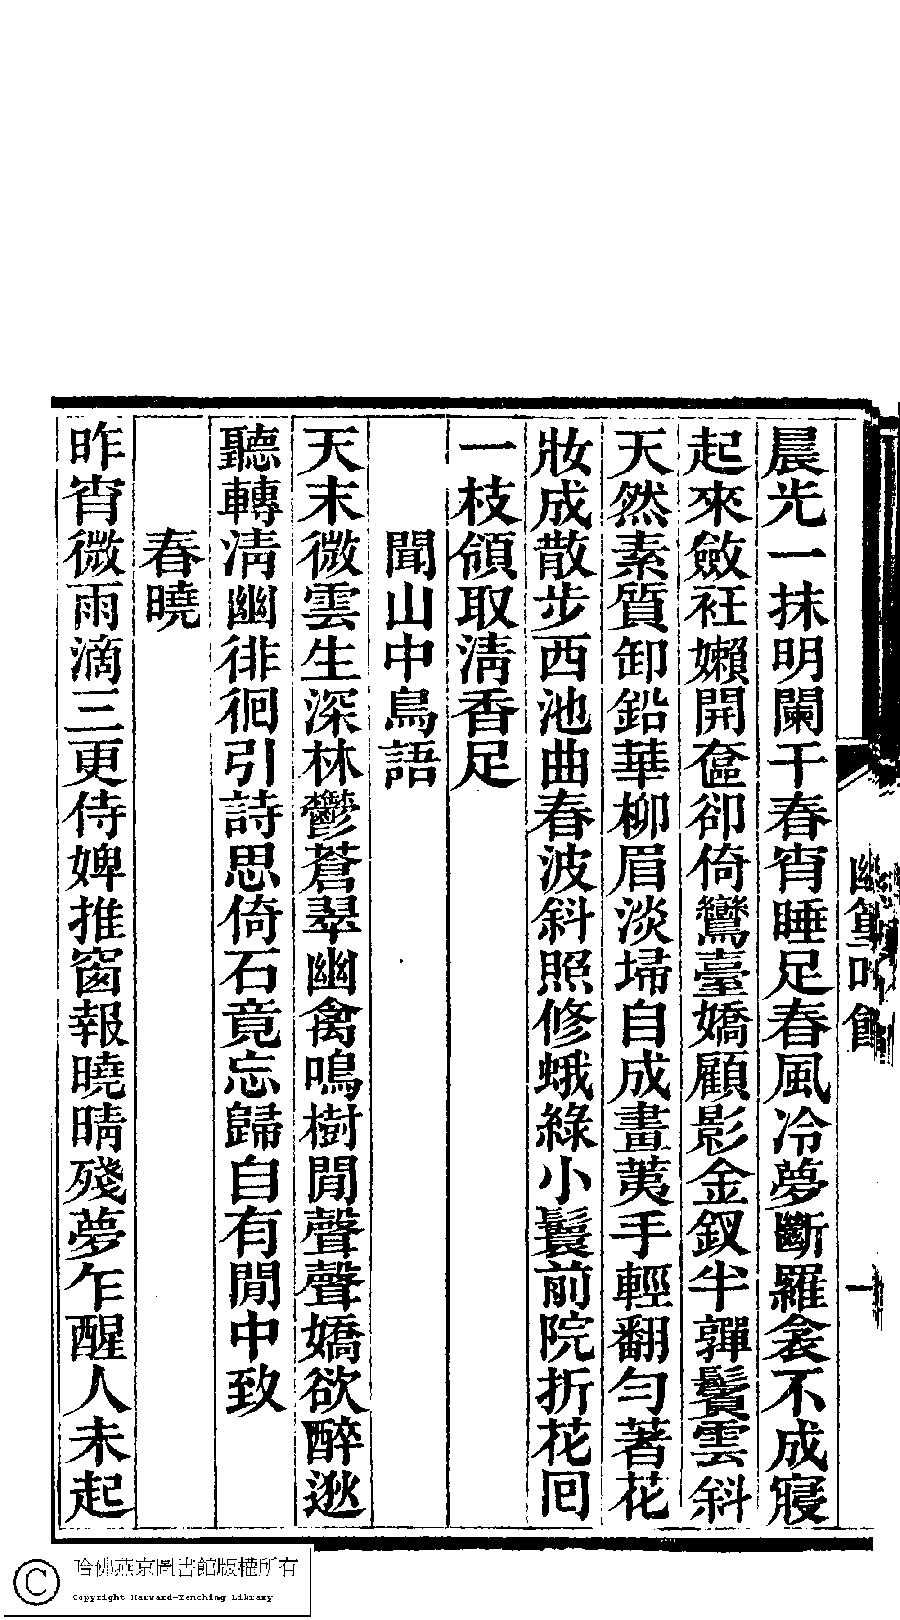 晨光一抹明闌干春宵睡足春風冷夢斷羅衾不成寢
起來斂衽嬾開奩卻倚鸞臺嬌顧影金釵半嚲鬢雲斜
天然素質卸鉛華柳眉淡埽自成畫荑手輕翻勻著花
妝成散步西池曲春波斜照修蛾綠小鬟前院折花回
一枝領取淸香足
聞山中鳥語
天末微雲生深林鬱蒼翠幽禽鳴樹閒聲聲嬌欲醉邀
聽轉淸幽徘徊引詩思倚石竟忘歸自有閒中致
春曉
昨宵微雨滴三更侍婢推窗報曉晴殘夢乍醒人未起
幽篁吟館
一
哈佛燕京圖書館版權所有
Copyright Harvard-Yenching Library